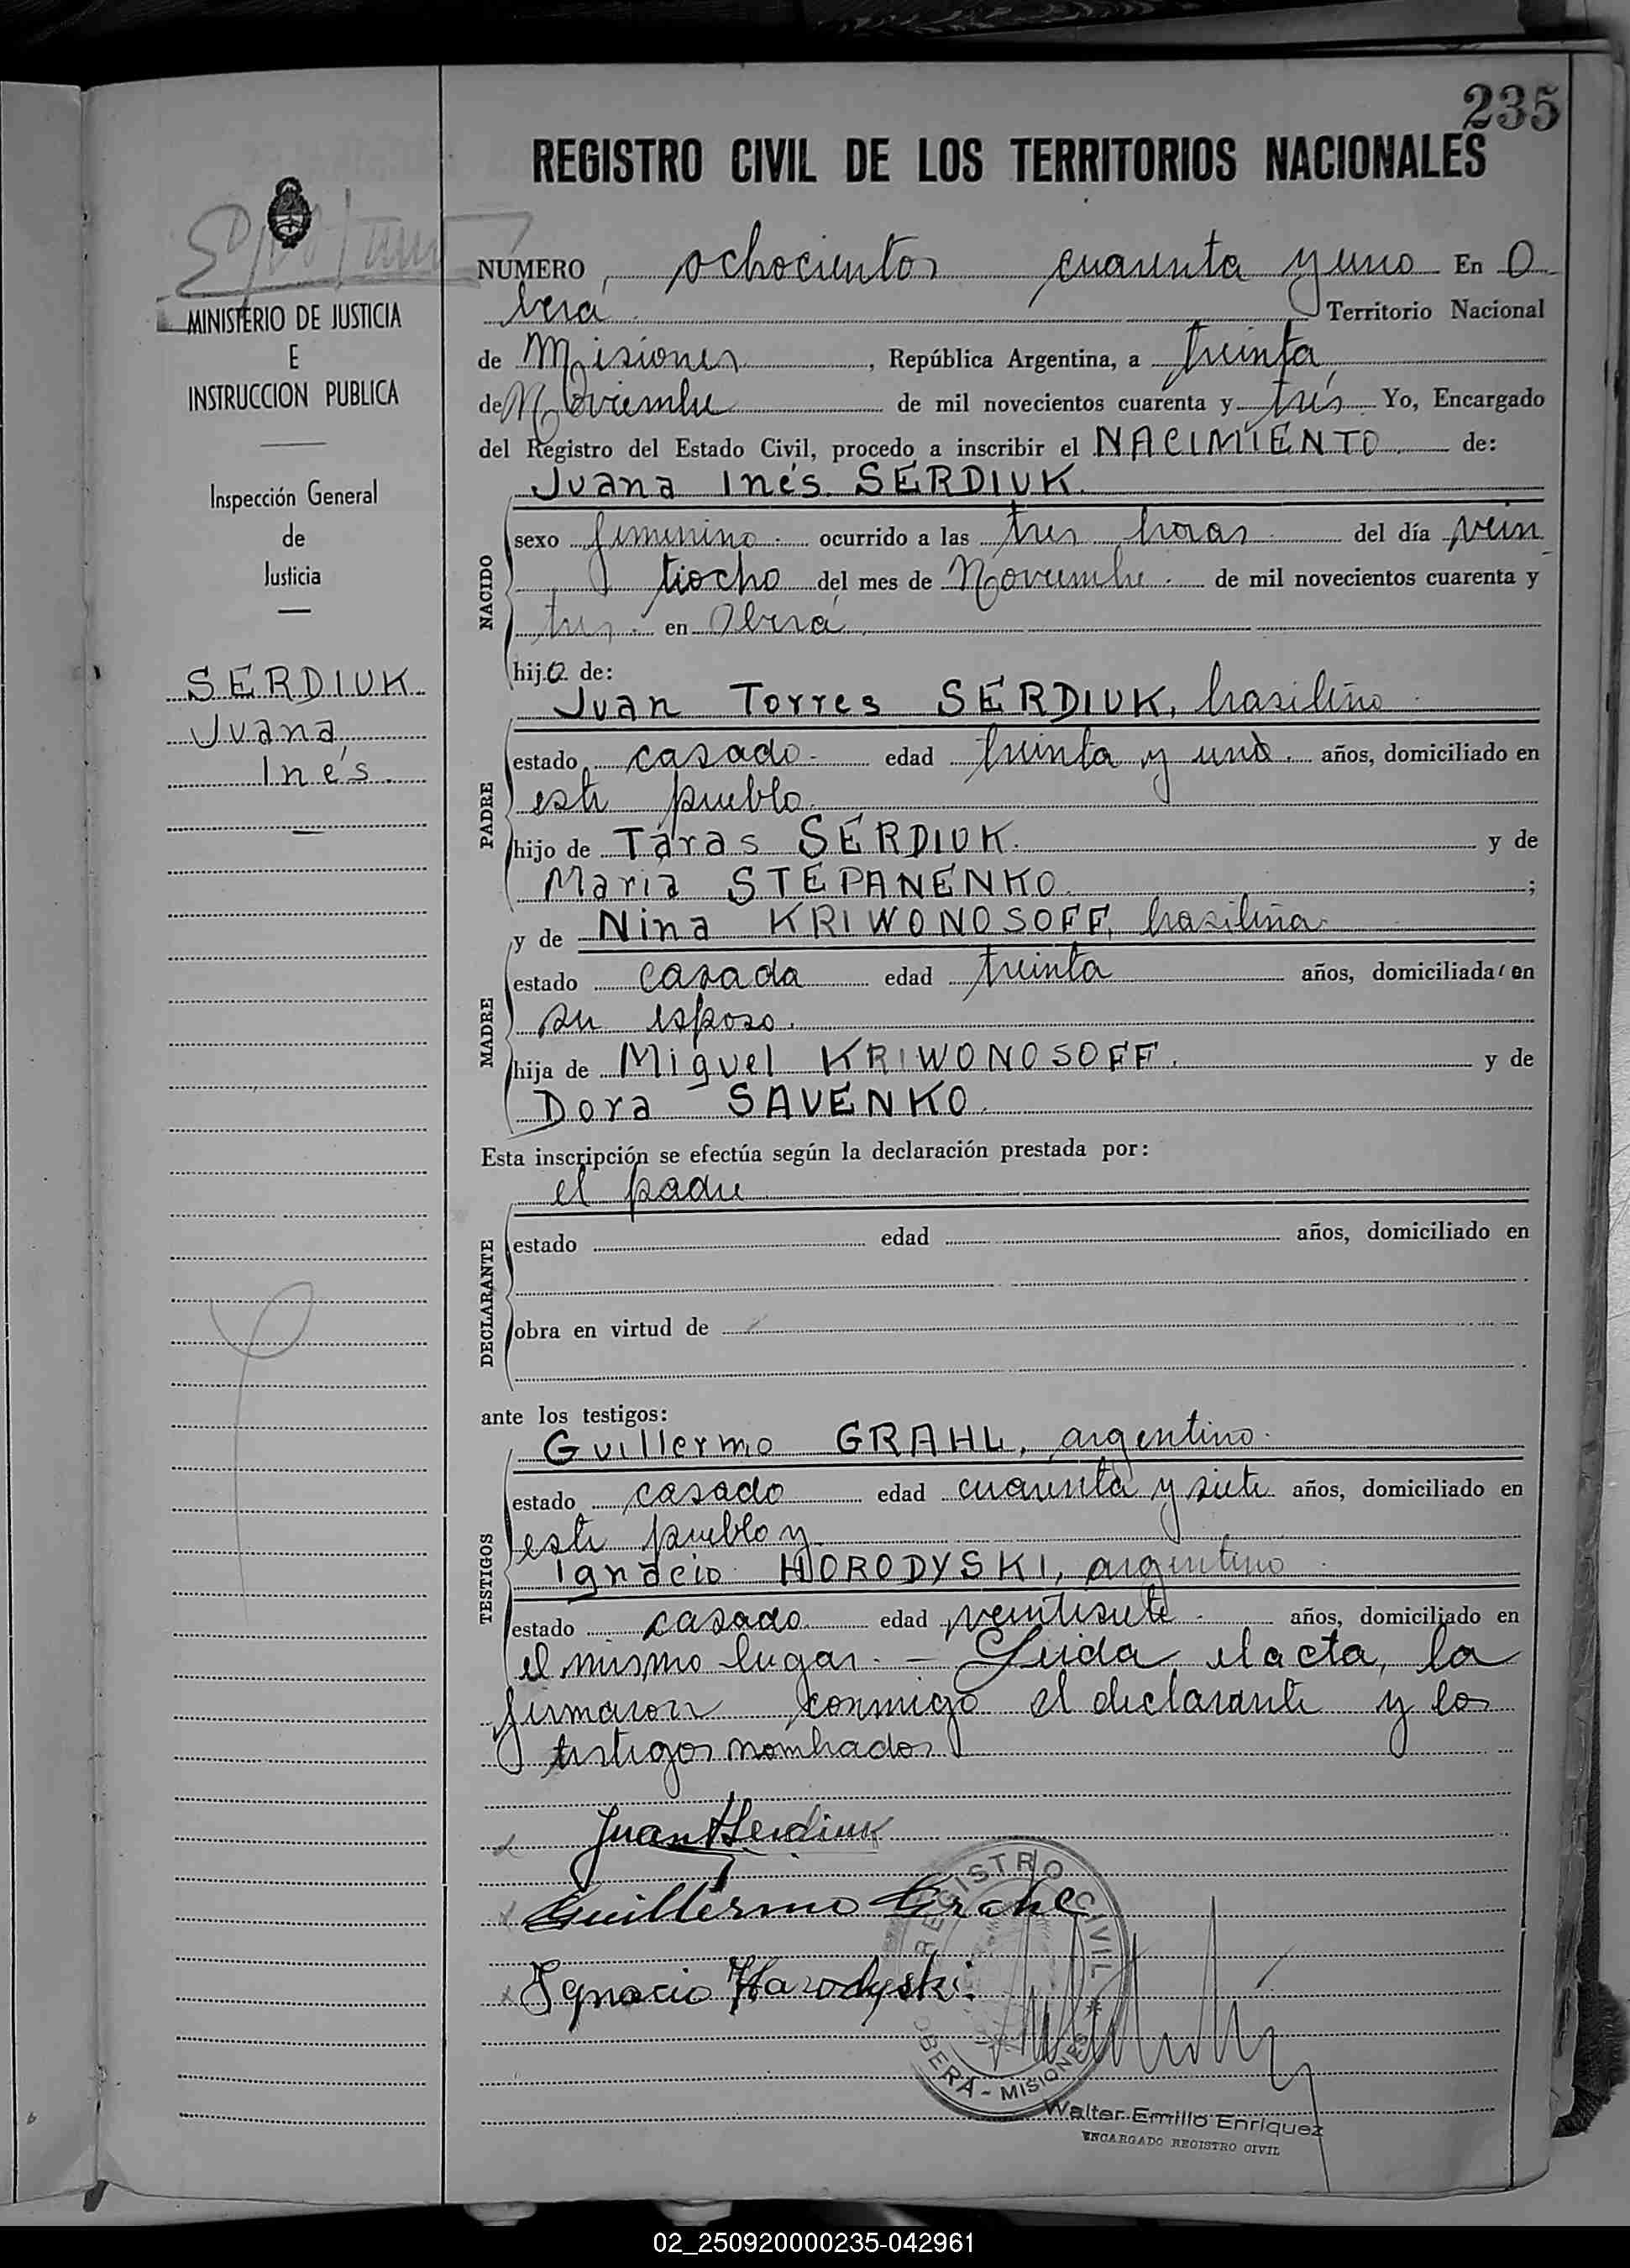 235
REGISTRO CIVIL DE LOS TERRITORIOS NACIONALES
MINISTERIO DE JUSTICIA
E
INSTRUCCION PUBLICA
Inspección General
de
Justicia
SERDIUK
Juana,
Inés.
NUMERO ochocientos cuarenta y uno En O
berá Territorio Nacional
de Misiones, República Argentina, a treinta
de Noviembre de mil novecientos cuarenta y tres Yo, Encargado
del Registro del Estado Civil, procedo a inscribir el NACIMIENTO de:
Juana Inés SERDIUK.
NACIDO
sexo femenino ocurrido a las tres horas del día vein
tiocho del mes de Noviembre de mil novecientos cuarenta y
tres en Oberá
hija de:
Juan Torres SERDIUK, brasileño
PADRE
estado casado edad treinta y uno años, domiciliado en
este pueblo
hijo de Taras SERDIUK y de
Maria STEPANENKO ;
y de Nina KRIWONOSOFF, brasileña
MADRE
estado casada edad treinta años, domiciliada en
su esposo.
hija de Miguel KRIWONOSOFF. y de
Dora SAVENKO.
Esta inscripción se efectúa según la declaración prestada por:
el padre
DECLARANTE
estado edad años, domiciliado en
obra en virtud de
ante los testigos:
Guillermo GRAHL, argentino
TESTIGOS
estado casado edad cuarenta y siete años, domiciliado en
este pueblo y
Ignacio HORODYSKI, argentino
estado casado edad veintisiete años, domiciliado en
el mismo lugar. — Leida el acta, la
firmaron conmigo el declarante y los
testigos nombrados
Juan T Serdiuk
Guillermo Grahl
Ignacio Horodyski
REGISTRO CIVIL
OBERÁ - MISIONES
Walter Emilio Enriquez
ENCARGADO REGISTRO CIVIL
02_250920000235-042961